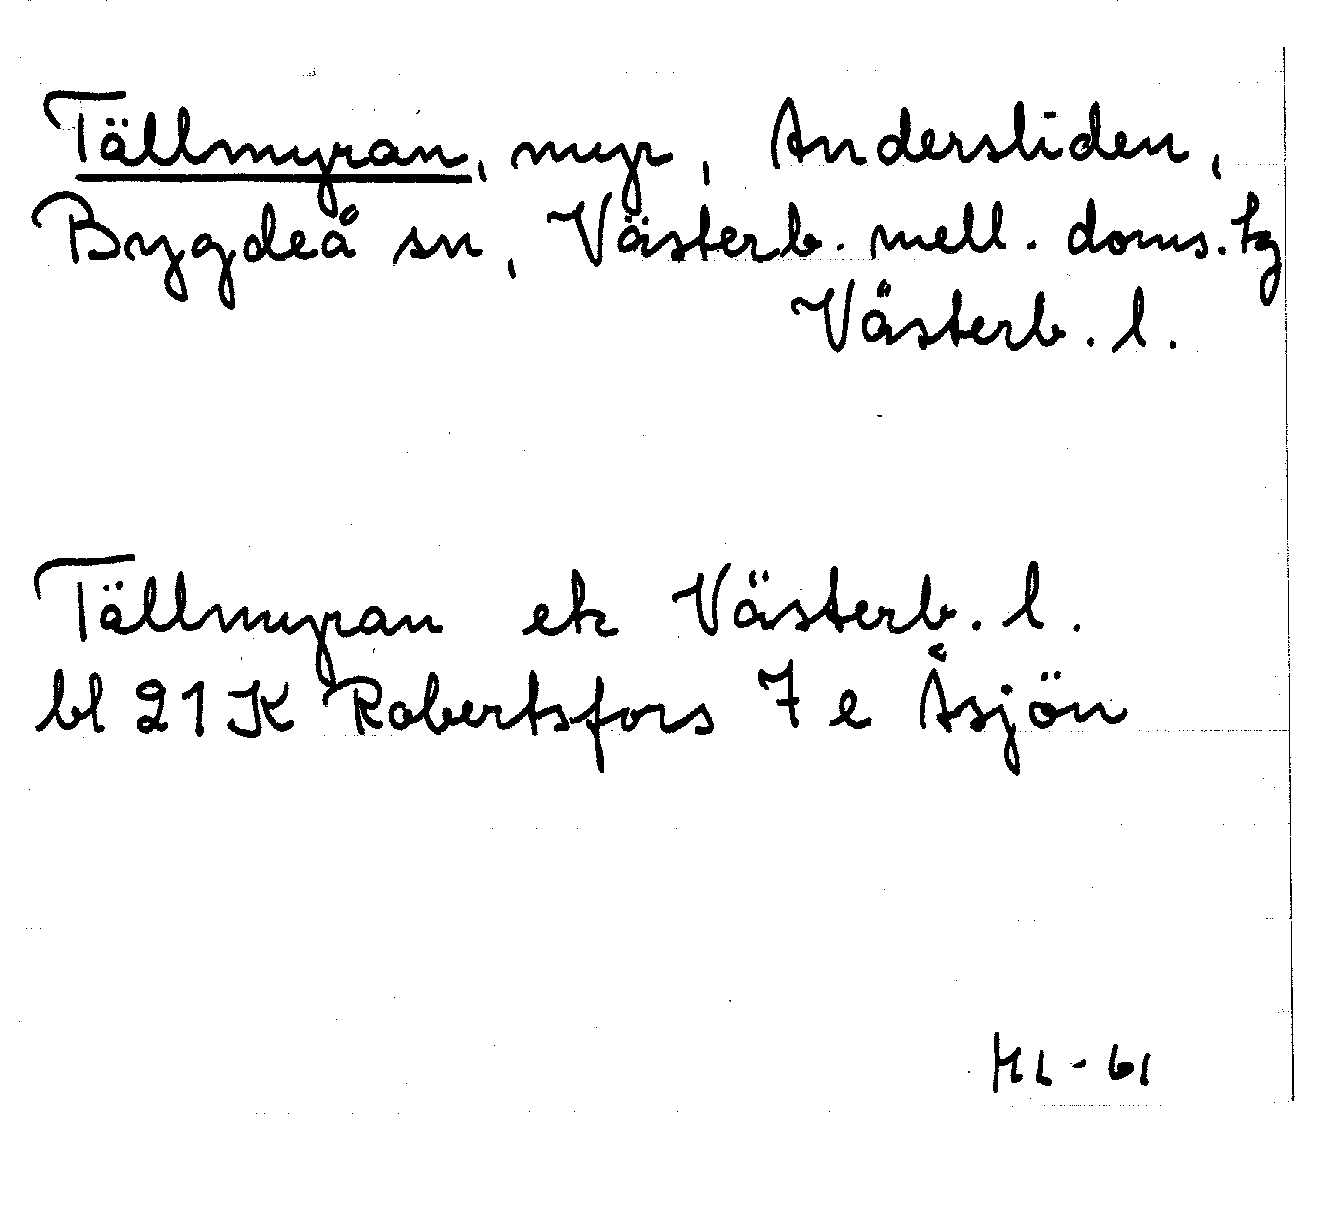 Tällmyran, myr, Andersliden,
Bygdeå sn, Västerb. mell. doms. tg
Västerb. l.
Tällmyran ek Västerb. l.
bl 21 K Robertsfors 7 e Åsjön
HL - 61